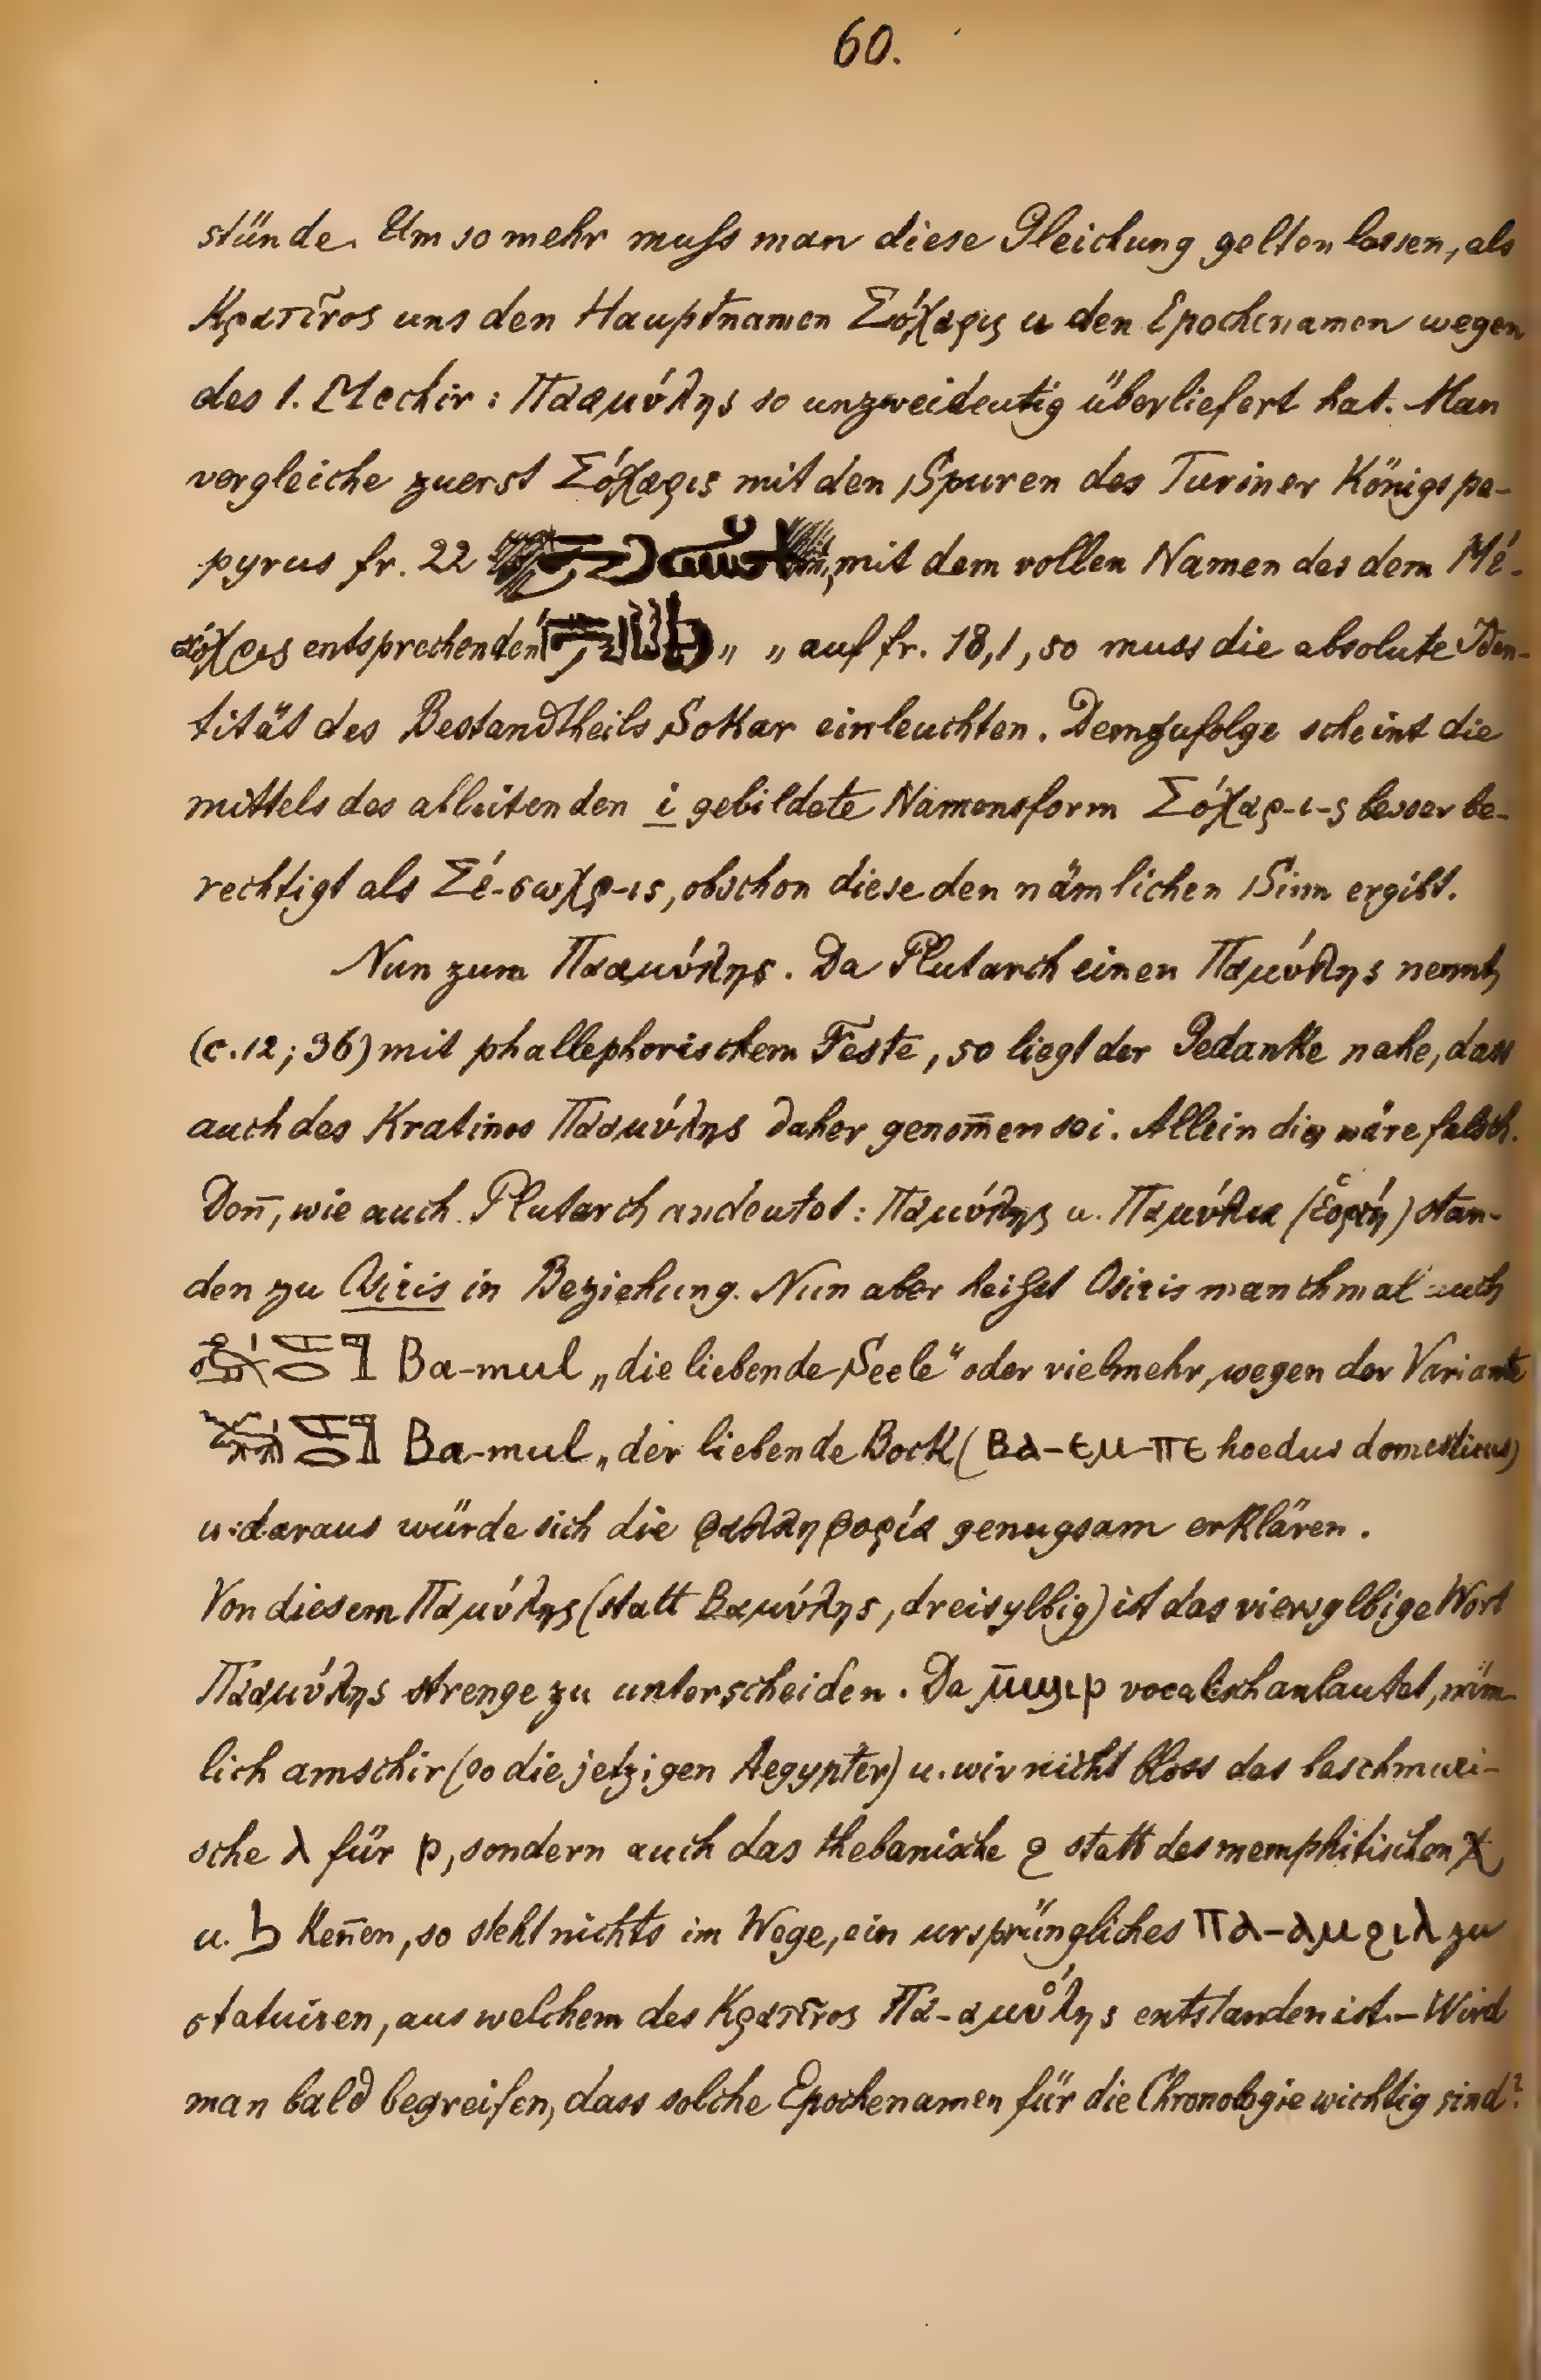 60.
stünde. Um so mehr muſs man diese Gleichung gelten lassen, als
Κρατῖνος uns den Hauptnamen Σόχαρις u den Epochenamen wegen
des 1. Mechir: Πααμύλης so unzweideutig überliefert hat. Man
vergleiche zuerst Σόχαρις mit den Spuren des Turiner Königspa-
pyrus fr. 22 mit dem vollen Namen des dem Μέ-
σωχρις entsprechenden „ „ auf fr. 18,1, so muss die absolute Iden-
tität des Bestandtheils Sokar einleuchten. Demzufolge scheint die
mittels des ableitenden i gebildete Namensform Σόχαρ-ι-ς besser be-
rechtigt als Σέ-σωχρ-ις, obschon diese den nämlichen Sinn ergibt.
Nun zum Πααμύλης. Da Plutarch einen Παμύλης nennt,
(c. 12; 36) mit phallephorischem Feste, so liegt der Gedanke nahe, dass
auch des Kratinos Πααμύλης daher genom̅en sei. Allein dies wäre falsch.
Den̅, wie auch Plutarch andeutet: Παμύλης u. Παμύλια (ἑορτή) stan-
den zu Osiris in Beziehung. Nun aber heiſst Osiris manchmal auch
Ba-mul „die liebende Seele" oder vielmehr, wegen der Variante
Ba-mul „der liebende Bock (ⲃⲁ-ⲉⲙ-ⲡⲉ hoedus domesticus)
u. daraus würde sich die φαλληφορία genugsam erklären.
Von diesem Παμύλης (statt Βαμύλης, dreisylbig) ist das viersylbige Wort
Πααμύλης strenge zu unterscheiden. Da ⲙ̅ϣⲓⲣ vocalisch anlautet, näm-
lich amschir (so die jetzigen Aegypter) u. wir nicht bloss das baschmuri-
sche ⲗ für ⲣ, sondern auch das thebanische ϩ statt des memphitischen ⲭ
u. ϧ ken̅en, so steht nichts im Wege, ein ursprüngliches ⲡⲁ-ⲁⲙϩⲓⲗ zu
statuiren, aus welchem des Κρατῖνος Πα-αμύλης entstanden ist. – Wird
man bald begreifen, dass solche Epochenamen für die Chronologie wichtig sind?